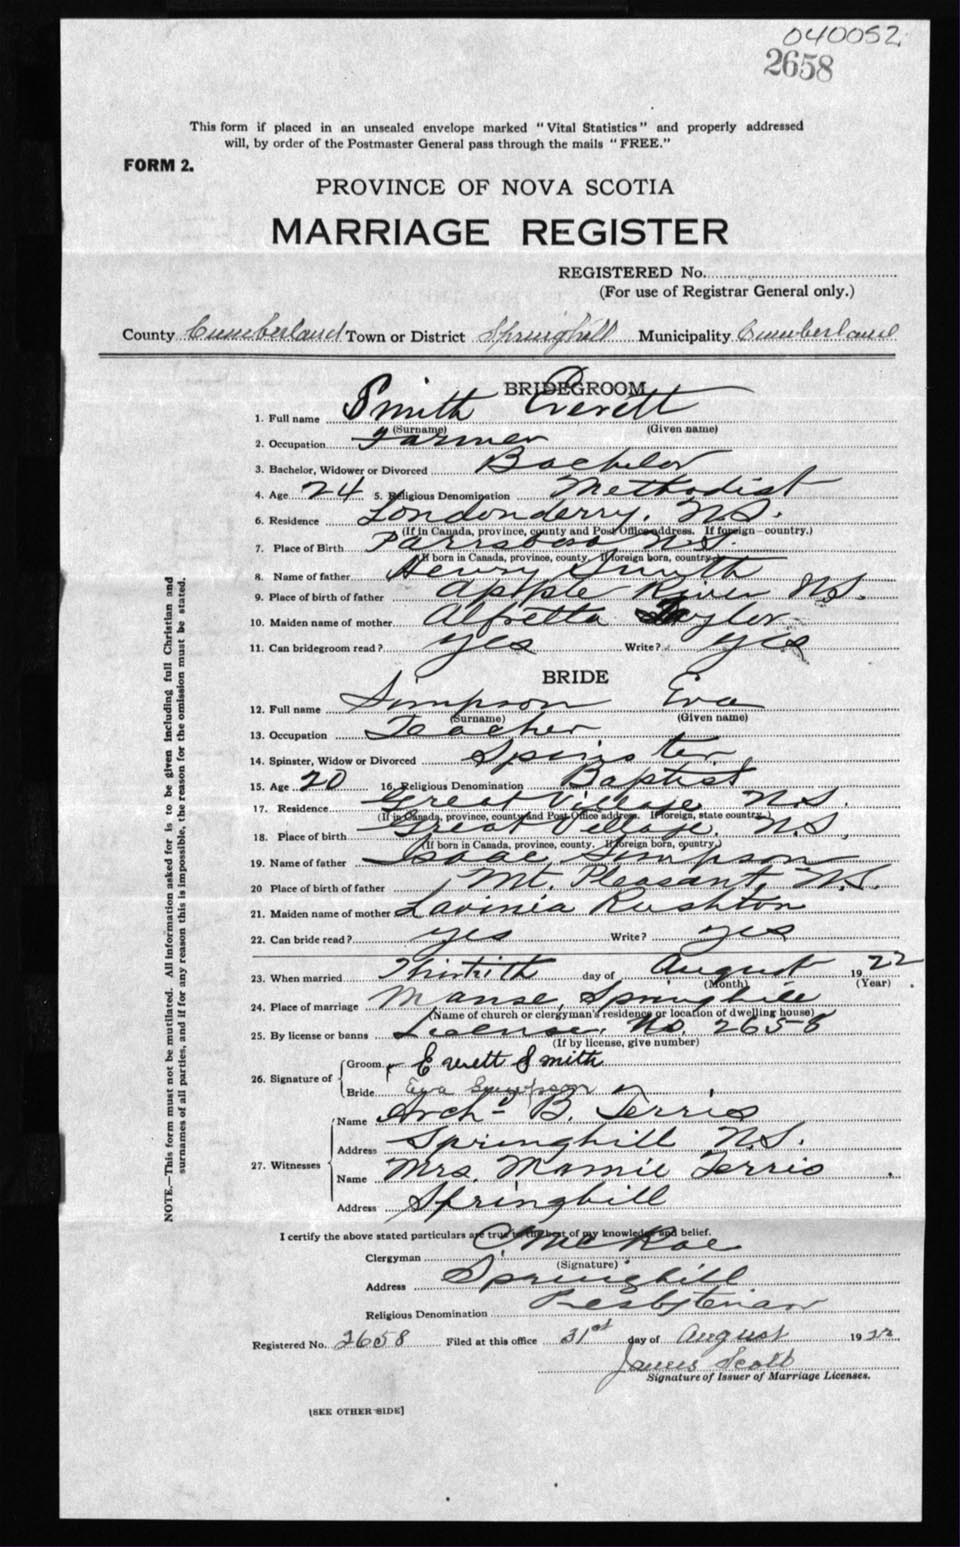 040052
2658
This form if placed in an unsealed envelope marked "Vital Statistics" and properly addressed
will, by order of the Postmaster General pass through the mails "FREE."
FORM 2.
PROVINCE OF NOVA SCOTIA
MARRIAGE REGISTER
REGISTERED No.
(For use of Registrar General only.)
County Cumberland Town or District Springhill Municipality Cumberland
BRIDEGROOM
1. Full name Smith Everett
(Surname) (Given name)
2. Occupation Farmer
3. Bachelor, Widower or Divorced Bachelor
4. Age 24 5. Religious Denomination Methodist
6. Residence Londonderry, N.S.
(If in Canada, province, county and Post Office address. If foreign country.)
7. Place of Birth Parrsboro N.S.
(If born in Canada, province, county. If foreign born, country.)
8. Name of father Henry Smith
9. Place of birth of father Apple River N.S.
10. Maiden name of mother Alfretta Taylor
11. Can bridegroom read? yes Write? yes
BRIDE
12. Full name Simpson Eva
(Surname) (Given name)
13. Occupation Teacher
14. Spinster, Widow or Divorced Spinster
15. Age 20 16. Religious Denomination Baptist
17. Residence Great Village, N.S.
(If in Canada, province, county and Post Office address. If foreign, state country.)
18. Place of birth Great Village, N.S.
(If born in Canada, province, county. If foreign born, country.)
19. Name of father Isaac Simpson
20 Place of birth of father Mt. Pleasant, N.S.
21. Maiden name of mother Lavinia Rushton
22. Can bride read? yes Write? yes
23. When married Thirtith day of August 1922
(Month) (Year)
24. Place of marriage Manse, Springhill
(Name of church or clergyman's residence or location of dwelling house)
25. By license or banns License No. 2658
(If by license, give number)
26. Signature of
Groom Everett Smith
Bride Eva Simpson
27. Witnesses
Name Arch^d B. Terris
Address Springhill N.S.
Name Mrs. Mamie Terris
Address Springhill
I certify the above stated particulars are true to the best of my knowledge and belief.
Clergyman McRae
(Signature)
Address Springhill
Religious Denomination Presbyterian
Registered No. 2658 Filed at this office 31st day of August 1922
James Scott
Signature of Issuer of Marriage Licenses.
[SEE OTHER SIDE]
NOTE.—This form must not be mutilated. All information asked for is to be given including full Christian and
surnames of all parties, and if for any reason this is impossible, the reason for the omission must be stated.